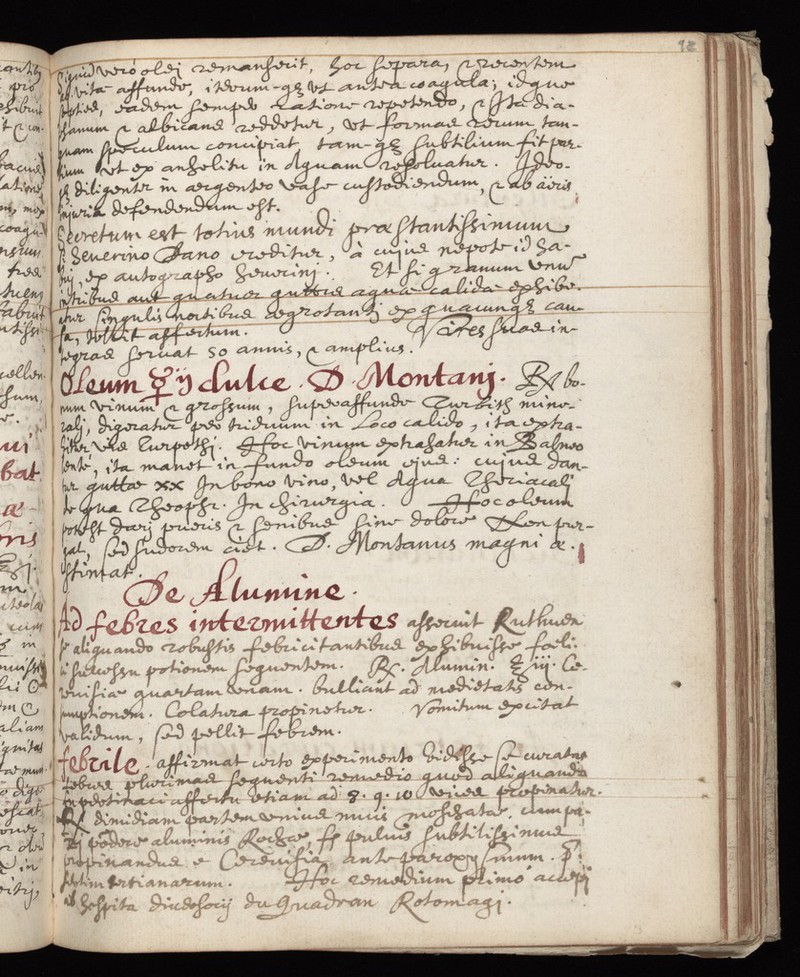 18
vero olei remanserit, hoc separa, & recentem
vitæ affunde, iterum-qȝ ut antea coagula; idque
septies, eadem semper ratione repetendo, & Ita dia-
phanum & albicans reddetur, ut formas rerum tan-
quam speculum concipiat, tam-qȝ subtilium fit par-
tium ut ex anhelitu in Aquam resolvatur. Ideo-
qȝ diligenter in argenteo vase custodiendum, & ab aëris
injuria defendendum est.
Secretum est totius mundi præstantissimum
Severino Dano creditur, à cujus nepote id ha-
bui, ex autographo Severini. Et si granum unū
in tribus aut quatuor guttis aquæ calidæ exhibe-
atur singulis noctibus ægrotanti ex quacunqȝ cau-
sa, tollit affectum. Vires suas in-
tegras servat 50 annis, & amplius.
Oleum ☿ij dulce. D. Montanj. ℞ bo-
num vinum & grossum, superaffunde Turbith mine-
ralj, digeratur per triduum in Loco calido, ita extra-
hitur vis Turpethj. Hoc vinum extrahatur in Balneo
lente, ita manet in fundo oleum ejus: cujus dan-
tur guttæ xx In bono vino, vel Aqua Theriacalj
Aqua Theophr. In chirurgia. Hoc oleum
potest darj pueris & senibus sine dolore Non pur-
gat, sed sudorem ciet. D. Montanus magni æ-
stimat.
De Alumine.
Ad febres intermittentes asseruit Ruthven
se aliquando robustis febricitantibus exhibuisse foeli-
ci successu potionem sequentem. ℞. Alumin. ℥ iij. Ce-
revisiæ quartam unam. bulliant ad medietatis con-
sumptionem. Colatura propinetur. Vomitum excitat
validum, sed pellit febrem.
febrile. affirmat certo experimento vidisse se curatas
febres plurimas sequenti remedio quod aliquando
in pertinaci affectu etiam ad 8. 9. 10 vices propinatur.
℞ dimidiam partem unius nucis moschatæ, cum pa-
ri pondere aluminis Rochæ ff pulvis subtilissimus
propinandus e Cerevisia ante paroxysmum. p̄:
sertim tertianarum. Hoc remedium primo accepj
ab hospita du Quadran Rotomagj.